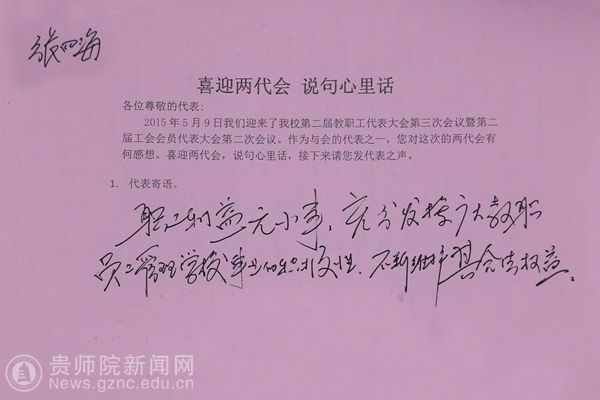 张四海
喜迎两代会 说句心里话
各位尊敬的代表:
2015年5月9日我们迎来了我校第二届教职工代表大会第三次会议暨第二
届工会会员代表大会第二次会议。作为与会的代表之一，您对这次的两代会有
何感想、喜迎两代会，说句心里话，接下来请您发代表之声。
1. 代表寄语。
职工利益无小事，充分发挥广大教职
员工管理学校事业的积极性，不断维护其合法权益。
贵师院新闻网
News.gznc.edu.cn